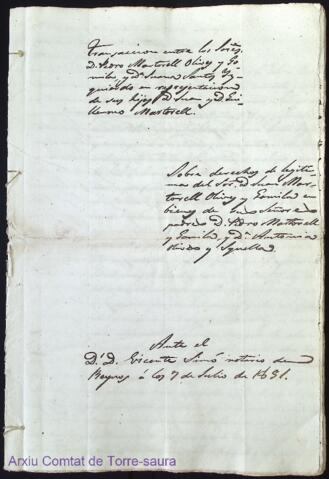 Transaccion entre los Sores.
D. Pedro Martorell Olives y Go-
mila, y Da. Juana Santos Yz-
quierdo en representacion
de sus hijos D. Juan y D. Gui-
llermo Martorell.
Sobre derechos de legiti-
mas del Sor. D. Juan Mar-
torell Olives y Gomila en
bienes de sus Señores
padres D. Pedro Martorell
y Gomila, y Da. Antonia
Olives y Squella.
Ante el
Dr. D. Vicente Simó notario de
Reynos á los 7 de Julio de 1851.
Arxiu Comtat de Torre-saura